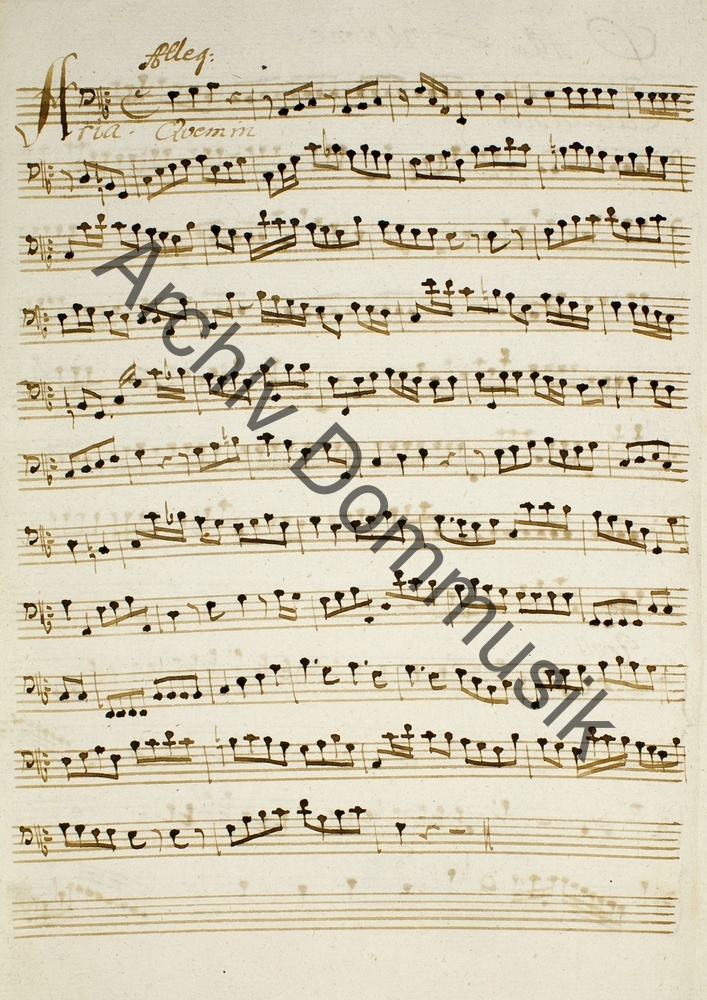 Alleg:
Aria. Quem in
Archiv Dommusik